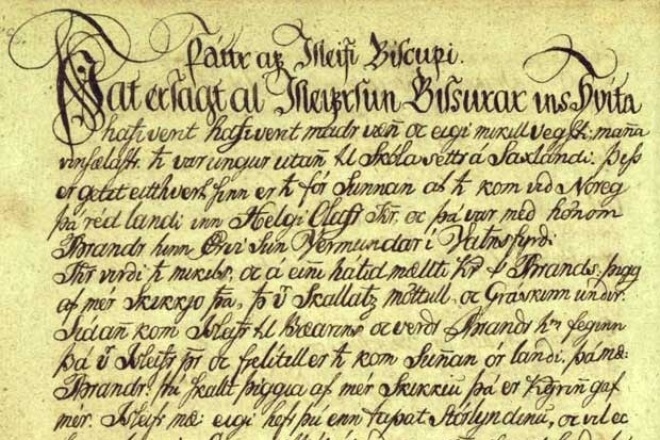 Þáttr af Isleifi Biscupi.
Þat er sagt at Isleifr sun Gissurar ins Hvíta
hafi vent hafi vent madr væñ oc eigi mikill vegsk: mañа
vinsælastr. ħ var ungur utañ til Skóla settr á Saxlandi. Þess
er getet eitthvert sinn er ħ fór Sunnan at ħ kom vid Noreg
þá réd landi inn Helgi Olafr Kr. oc þá var med hónom
Brandr hinn Ørvi sun Vermundar í Vatnsfyrdi
Kr virdi ħ mikils, oc á eiñi hátid mællti Kr t Brands: þigg
af mér Skikkjo þa, þ v Skallatz möttull, oc Gráskinn undir.
Sidañ kom Isleifr til Bæarins oc verdr Brandr hm feginn
þá v Isleifr pr oc felitell er ħ kom Suñan ór landi. þá mæ:
Brandr: þú skallt þiggia af mér Skikkiu þá er Kgriñ gaf
mér. Isleifr mæ: eigi hefr þú enn tapat Stórlyndinu, oc vil ec